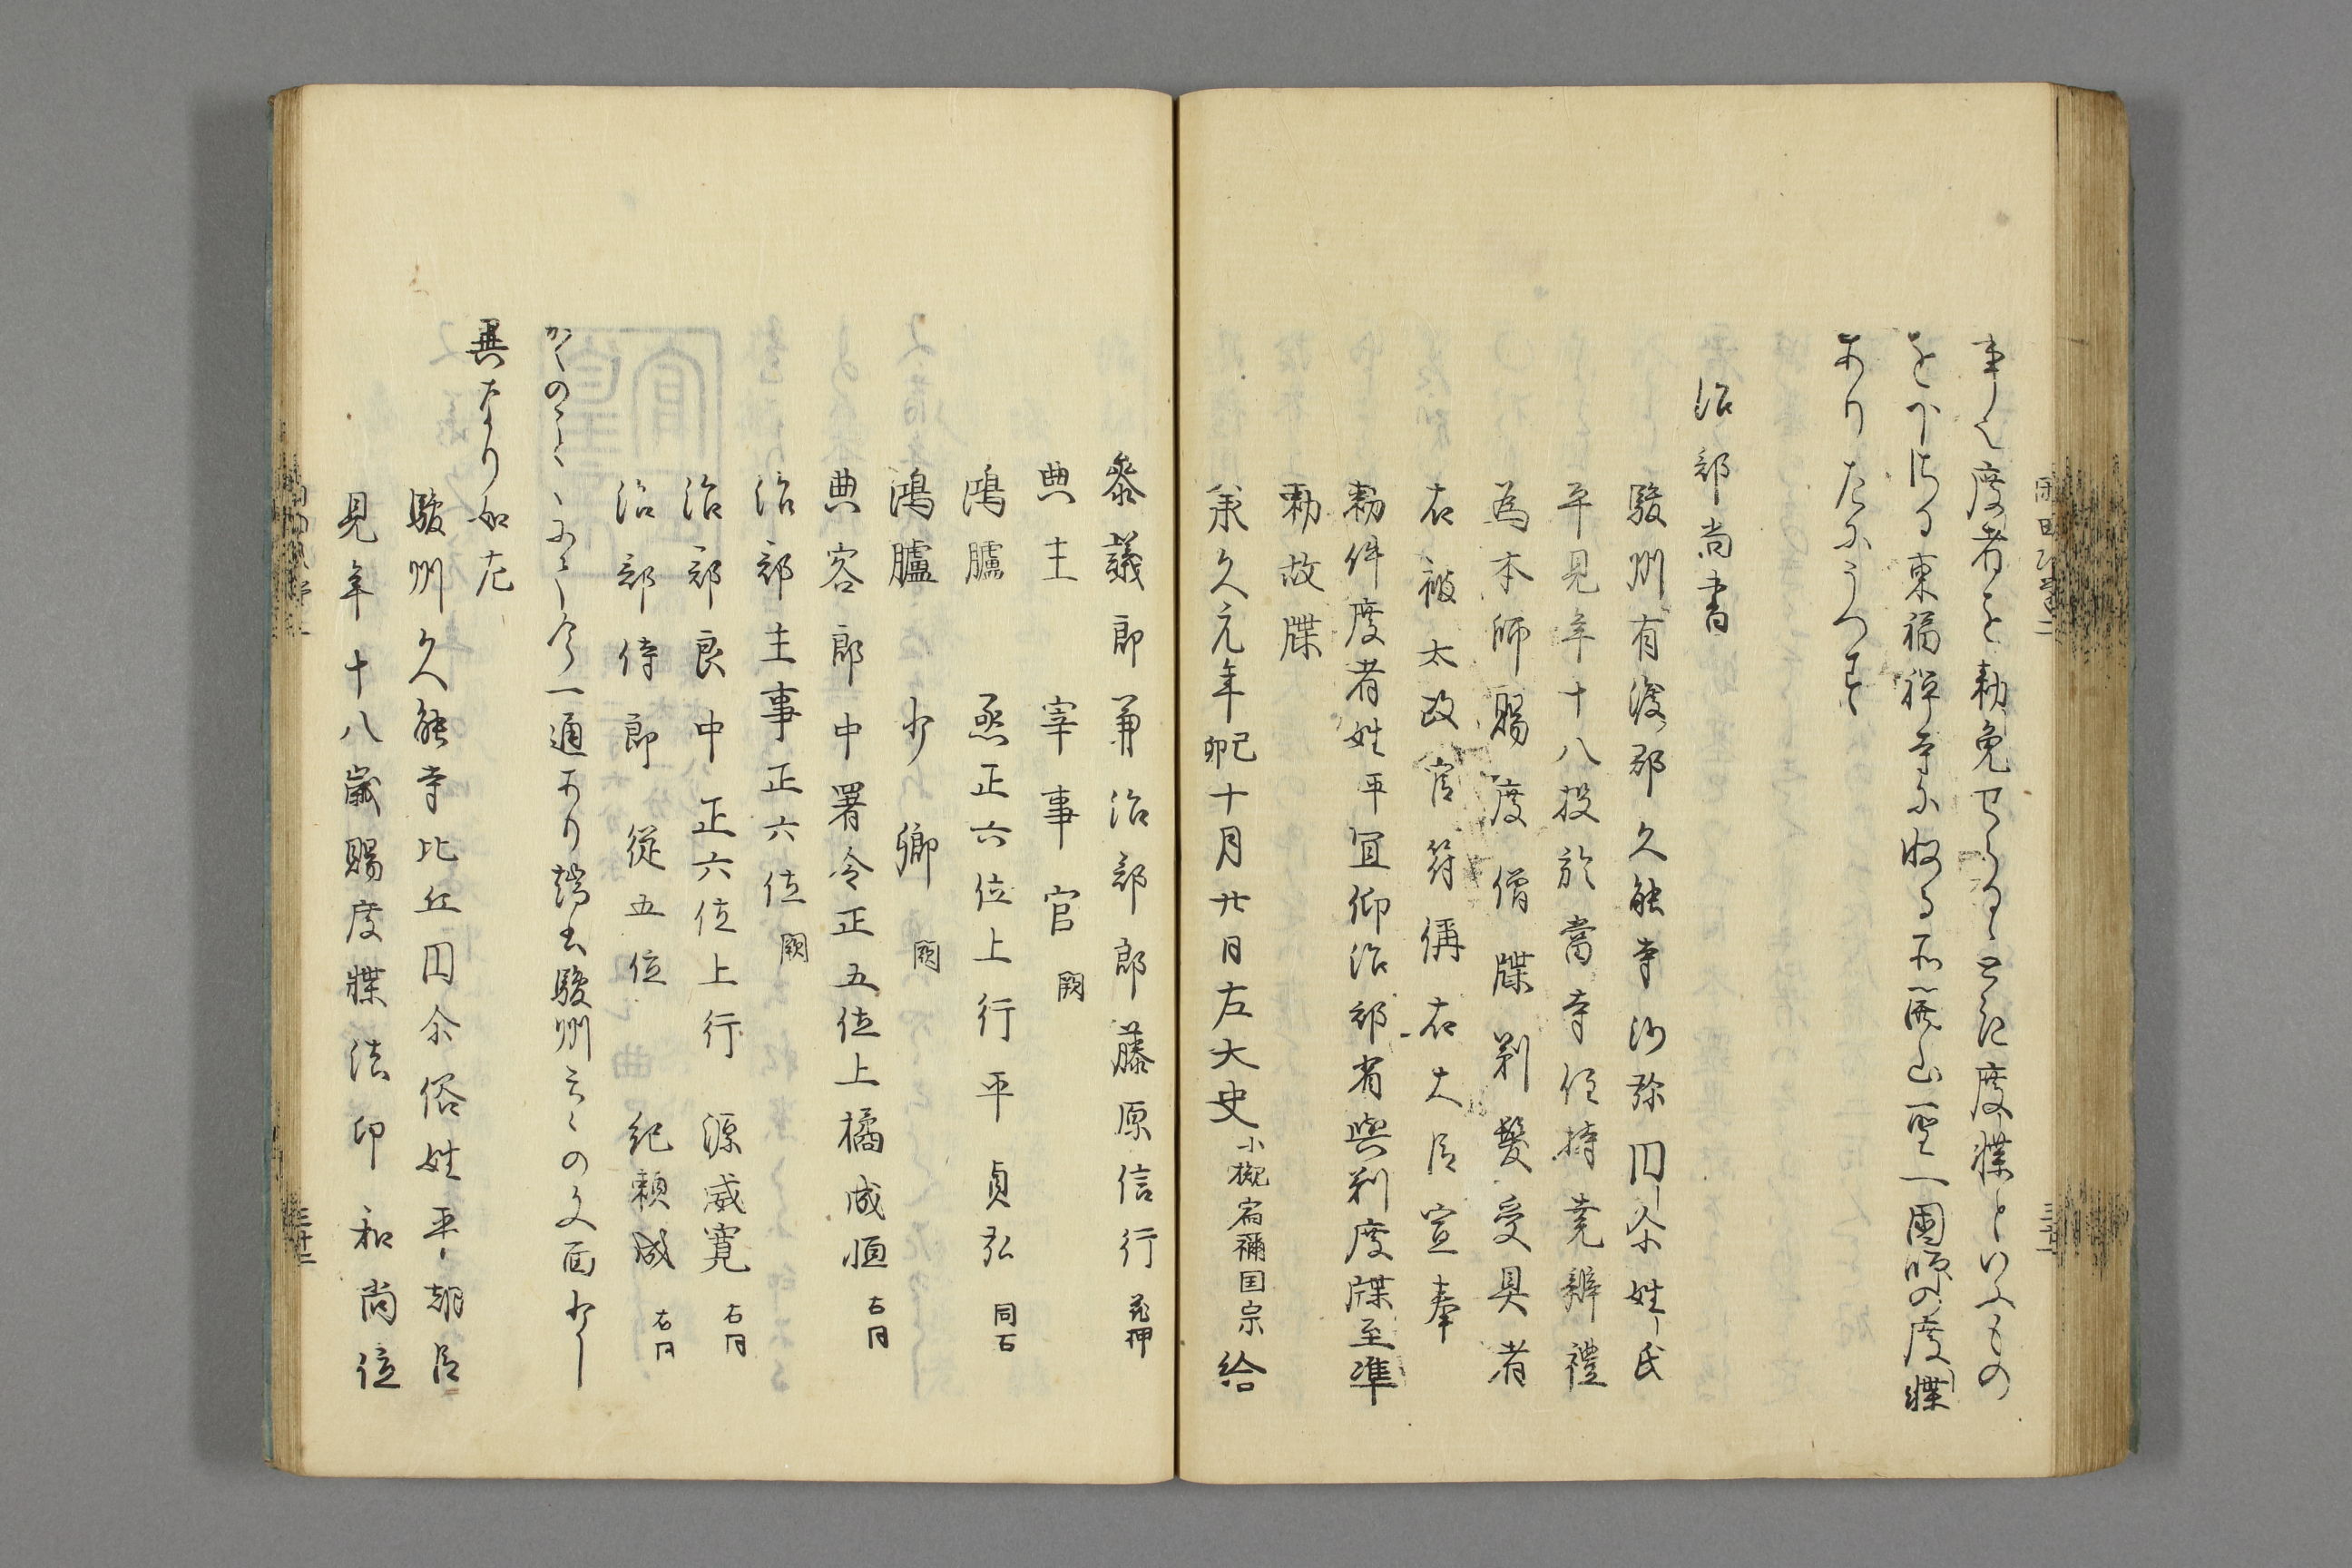 事しく度者を勅免せらるゝときに度牒といふもの
を下さる東福禅寺に收る所開山聖一國師の度牒
ありたにうつす
治部尚書
駿州有渡郡久能寺沙弥円尒姓氏
平見年十八投於當寺住持堯辨禮
為本師賜度僧牒剃髮受具者
右被太政官符偁右大臣宣奉
勅件度者姓平冝仰治部省與剃度牒至準
勅故牒
承久元年己卯十月廿日左大史小槻宿禰国宗給
參議郎兼治部郎藤原信行花押
典主　宰事官闕
鴻臚　丞正六位上行平貞弘同右
鴻臚　少卿闕
典客郎中署令正五位上橘成恒右同
治部主事正六位闕
治部良中正六位上行源威寛右同
治部侍郎從五位紀頼成右同
かくのことくにて今一通あり端书駿州云々の文面少し
異なり如左
駿州久能寺比丘円尒俗姓平朝臣
見年十八歳賜度牒法印和尚位